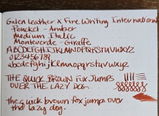 Galen Leather x Fire Writing International
Pocket - Amber
Medium Italic
Monteverde - Giraffe
ABCDEFGHIJKLMNOPQRSTUVWXYZ
0123456789
abcdefghijklmnopqrstuvwxyz
THE QUICK BROWN FOX JUMPS
OVER THE LAZY DOG.
the quick brown fox jumps over
the lazy dog.